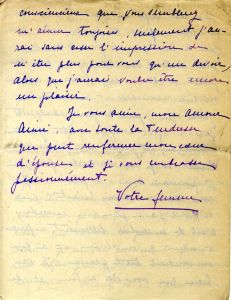 consciencieux que vous semblez
m'aimer toujours, seulement j'au-
rai sans cesse l'impression de
n'être plus pour vous qu'un devoir
alors que j'aurais voulu être encore
un plaisir.
Je vous aime, mon amour
Aimé avec toute la tendresse
que peut renfermer mon cœur
d'épouse et je vous embrasse
passionnément.
Votre femme